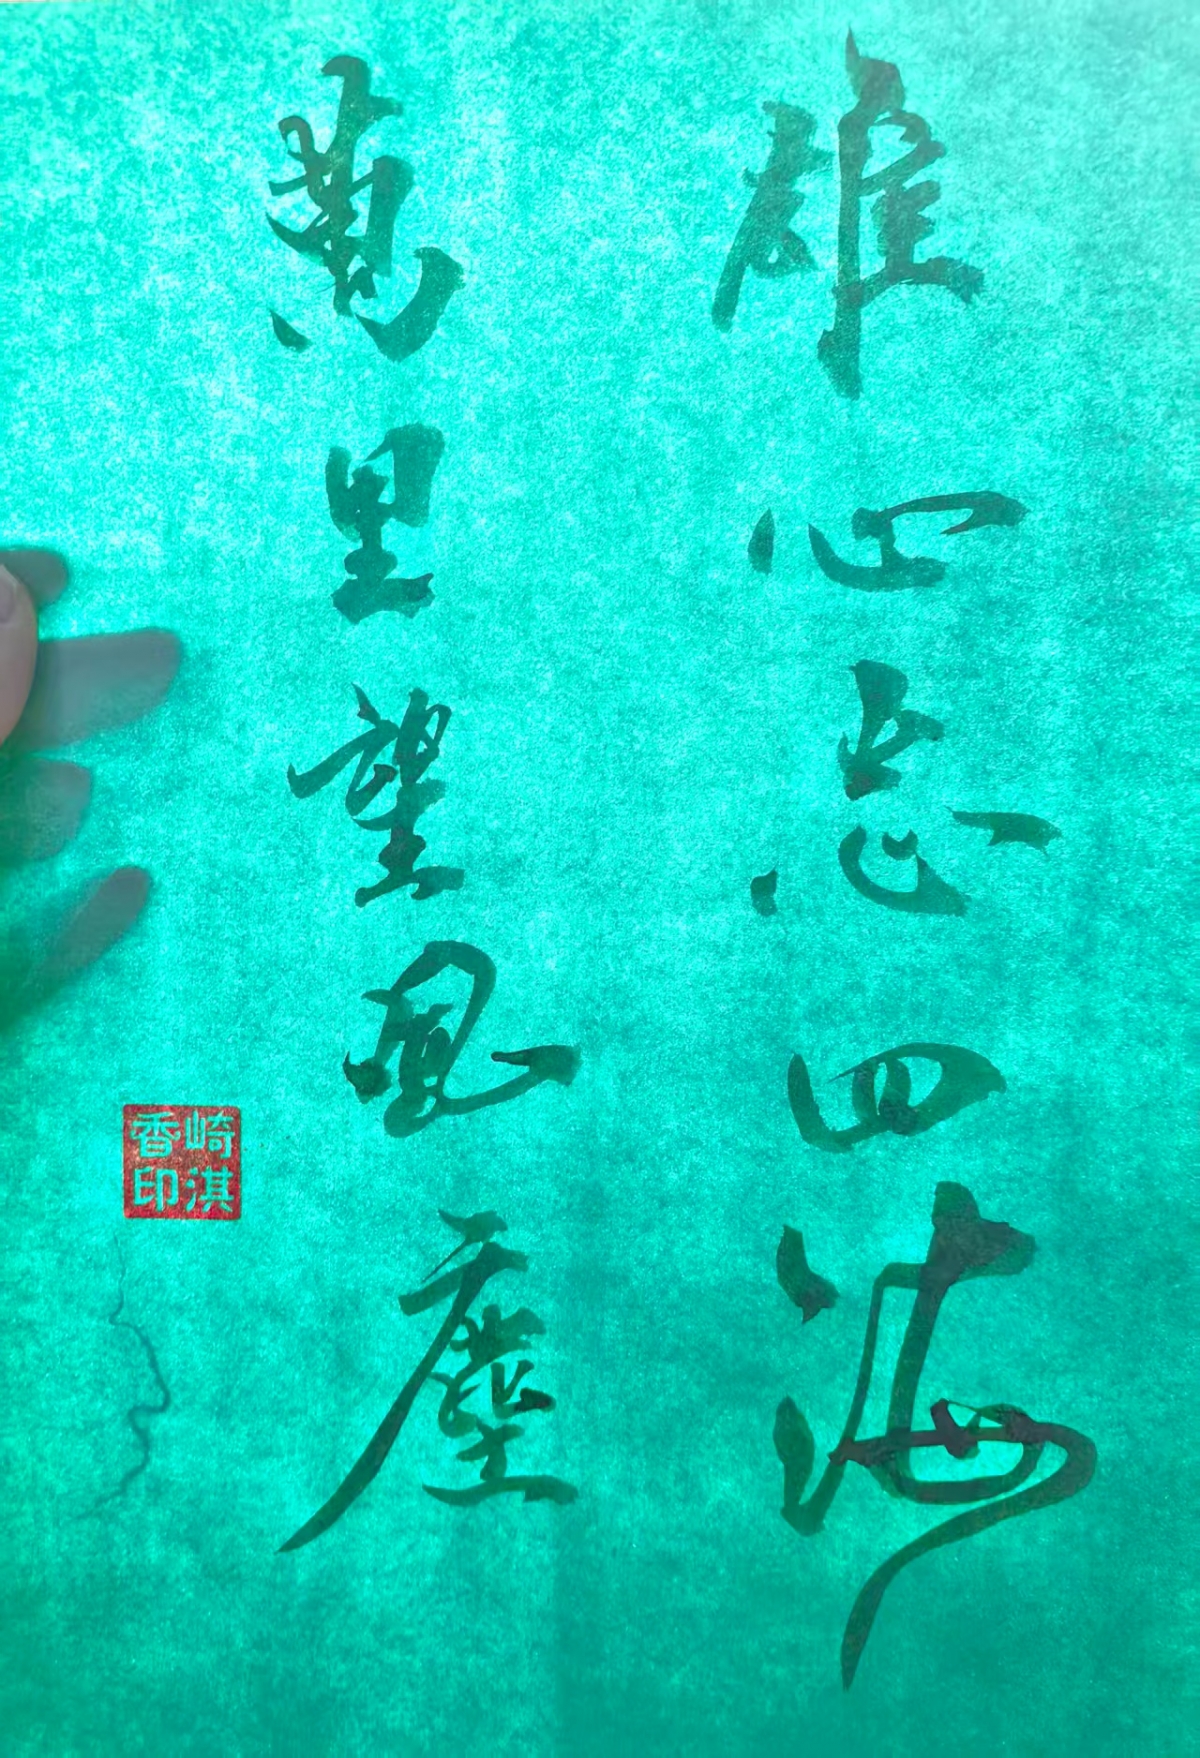 雄心志四海
萬里望風塵
崎淇
香印